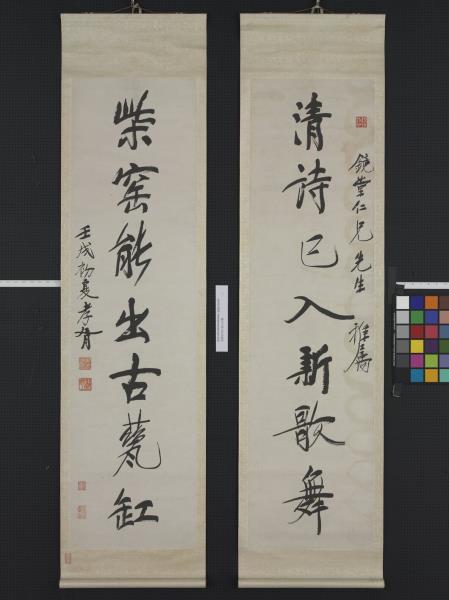 鏡堂仁兄先生 雅屬
清詩已入新歌舞
柴窰能出古甆缸
壬戌初夏孝胥